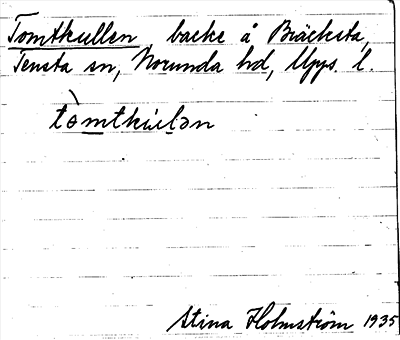 Tomtkullen backe å Bräcksta,
Tensta sn, Norunda hd, Upps. l.
tòmtkulən
Stina Holmström 1935